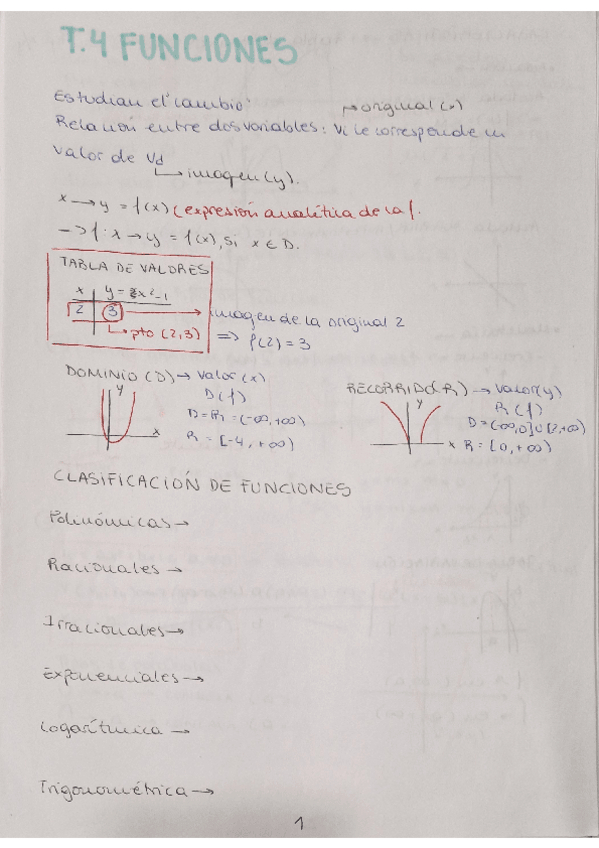 T.4 FUNCIONES
Estudian el cambio:
→ original (x)
Relación entre dos variables: Vi le corresponde un
valor de Vd
→ imagen (y).
x → y = f(x) (expresión analítica de la f.
→ f: x → y = f(x), si x ∈ D.
TABLA DE VALORES
x y = x²-1
2 3 → imagen de la original 2
→ pto (2,3) ⇒ f(2) = 3
DOMINIO (D) → valor (x)
D(f)
y
D = ℝ = (-∞, +∞)
x
R = [-4, +∞)
RECORRIDO (R) → valor (y)
R(f)
y
D = (-∞,0] ∪ [2,+∞)
x R = [0, +∞)
CLASIFICACIÓN DE FUNCIONES
Polinómicas →
Racionales →
Irracionales →
Exponenciales →
Logarítmica →
Trigonométrica →
1